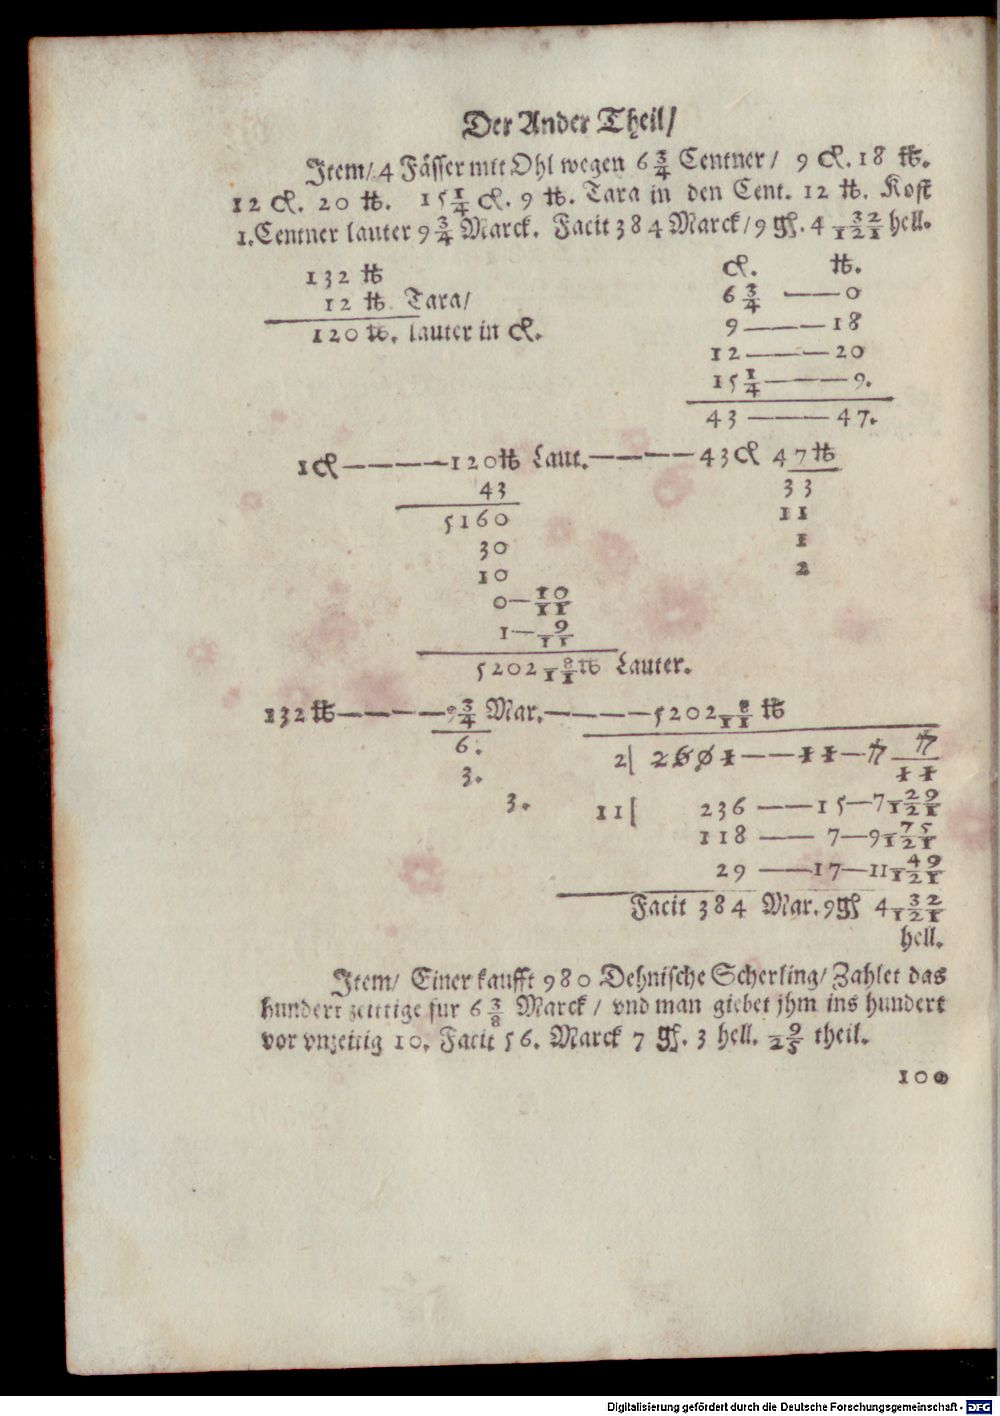 Der Ander Theil/
Item/ 4 Fässer mit Ohl wegen 6 3/4 Centner / 9 ℭ. 18 ℔.
12 ℭ. 20 ℔. 15 1/4 ℭ. 9 ℔. Tara in den Cent. 12 ℔. Kost
1. Centner lauter 9 3/4 Marck. Facit 384 Marck / 9 gß. 4 32/121 hell.
132 ℔
12 ℔ Tara/
120 ℔. lauter in ℭ.
ℭ. ℔.
6 3/4 — 0
9 — 18
12 — 20
15 1/4 — 9.
43 — 47.
1 ℭ — 120 ℔ Laut. — 43 ℭ 47 ℔
43 33
5160 11
30 1
10 2
0 — 10/11
1 — 9/11
5202 8/11 ℔ Lauter.
132 ℔ — 9 3/4 Mar. — 5202 8/11 ℔
6. 2| 2601 — 11 — 7 7/11
3.
3. 11| 236 — 15 — 7 29/121
118 — 7 — 9 75/121
29 — 17 — 11 49/121
Facit 384 Mar. 9 gß 4 32/121
hell.
Item/ Einer kaufft 980 Dehnische Scherling/ Zahlet das
hundert zeittige fur 6 3/8 Marck / vnd man giebet jhm ins hundert
vor vnzeitig 10. Facit 56. Marck 7 gß. 3 hell. 9/25 theil.
100
Digitalisierung gefördert durch die Deutsche Forschungsgemeinschaft - DFG